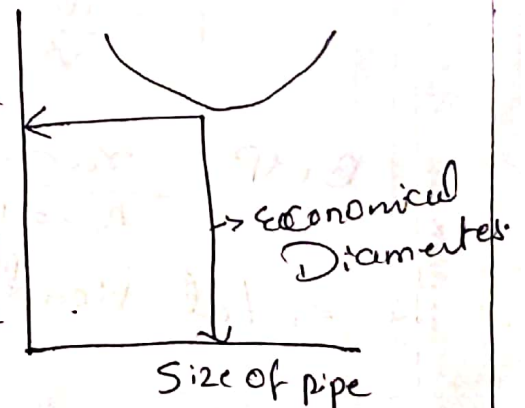 Economical
Diamentes.
Size of pipe